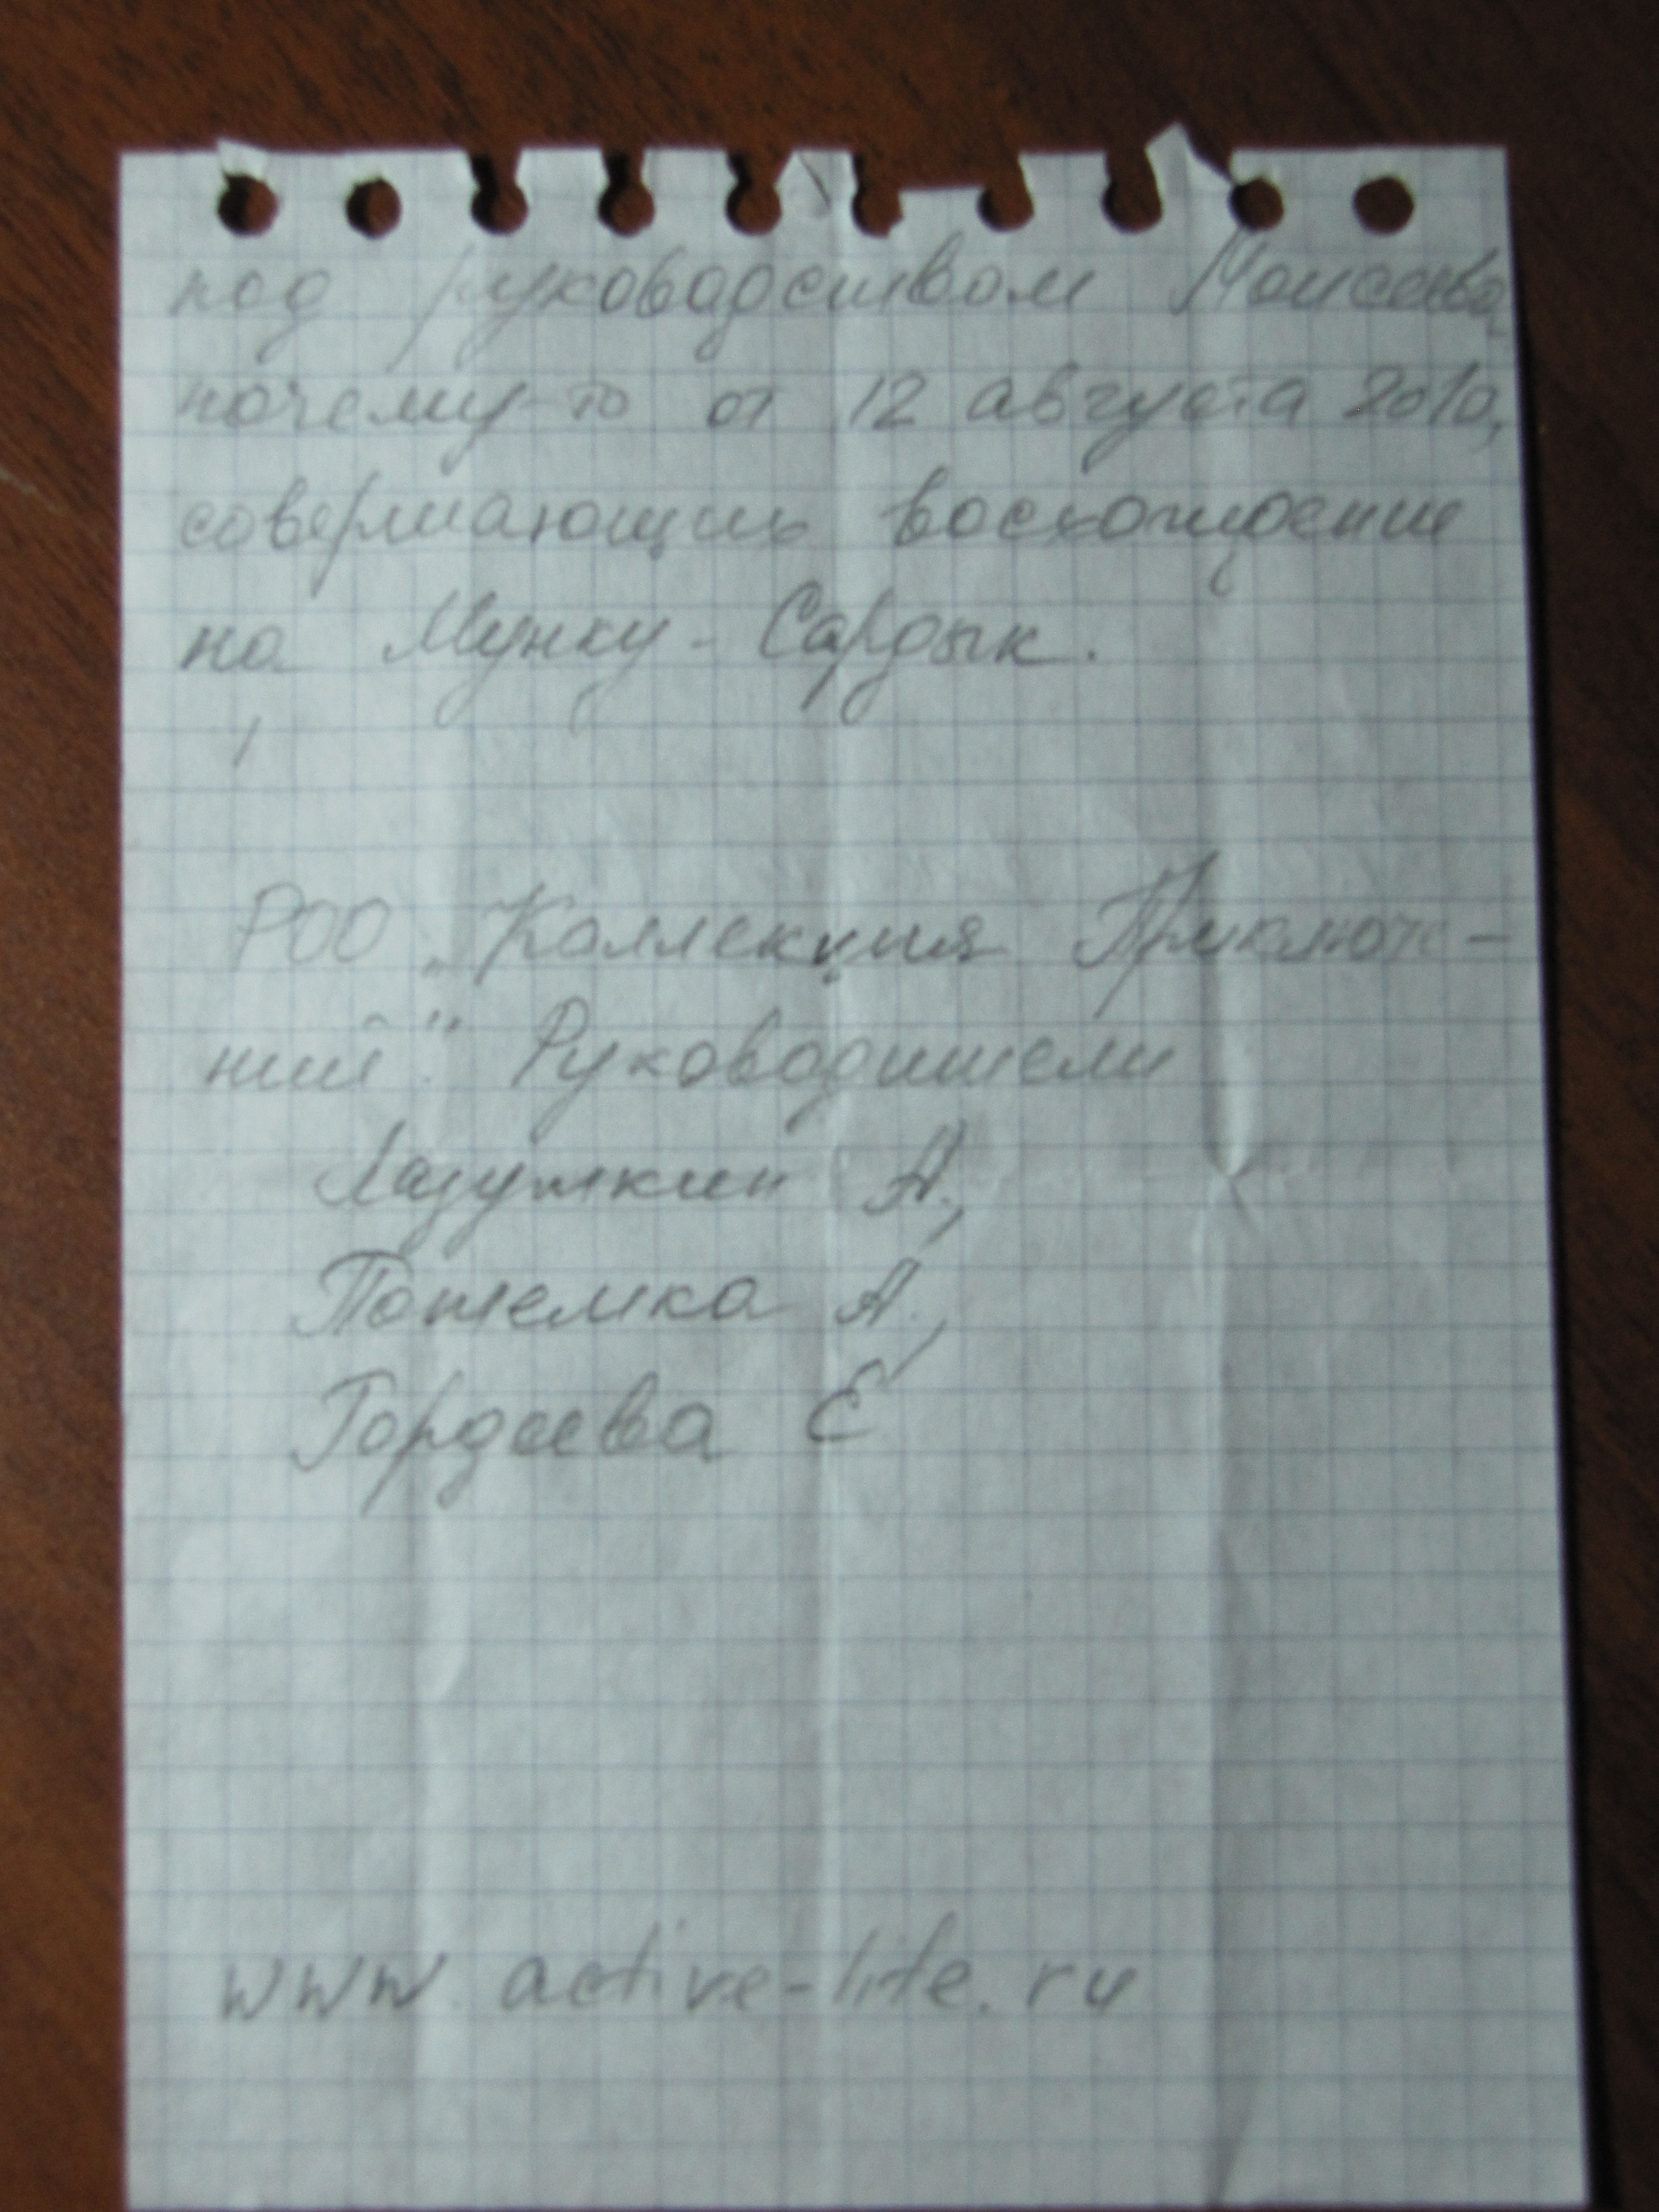 под руководством Моисеева,
почему-то от 12 августа 2010,
совершающим восхождение
на Мунку-Сардык.
РОО „Коллекция Приключе-
ний". Руководители
Лазуткин А.,
Потемка А.,
Гордеева Е
www.active-life.ru